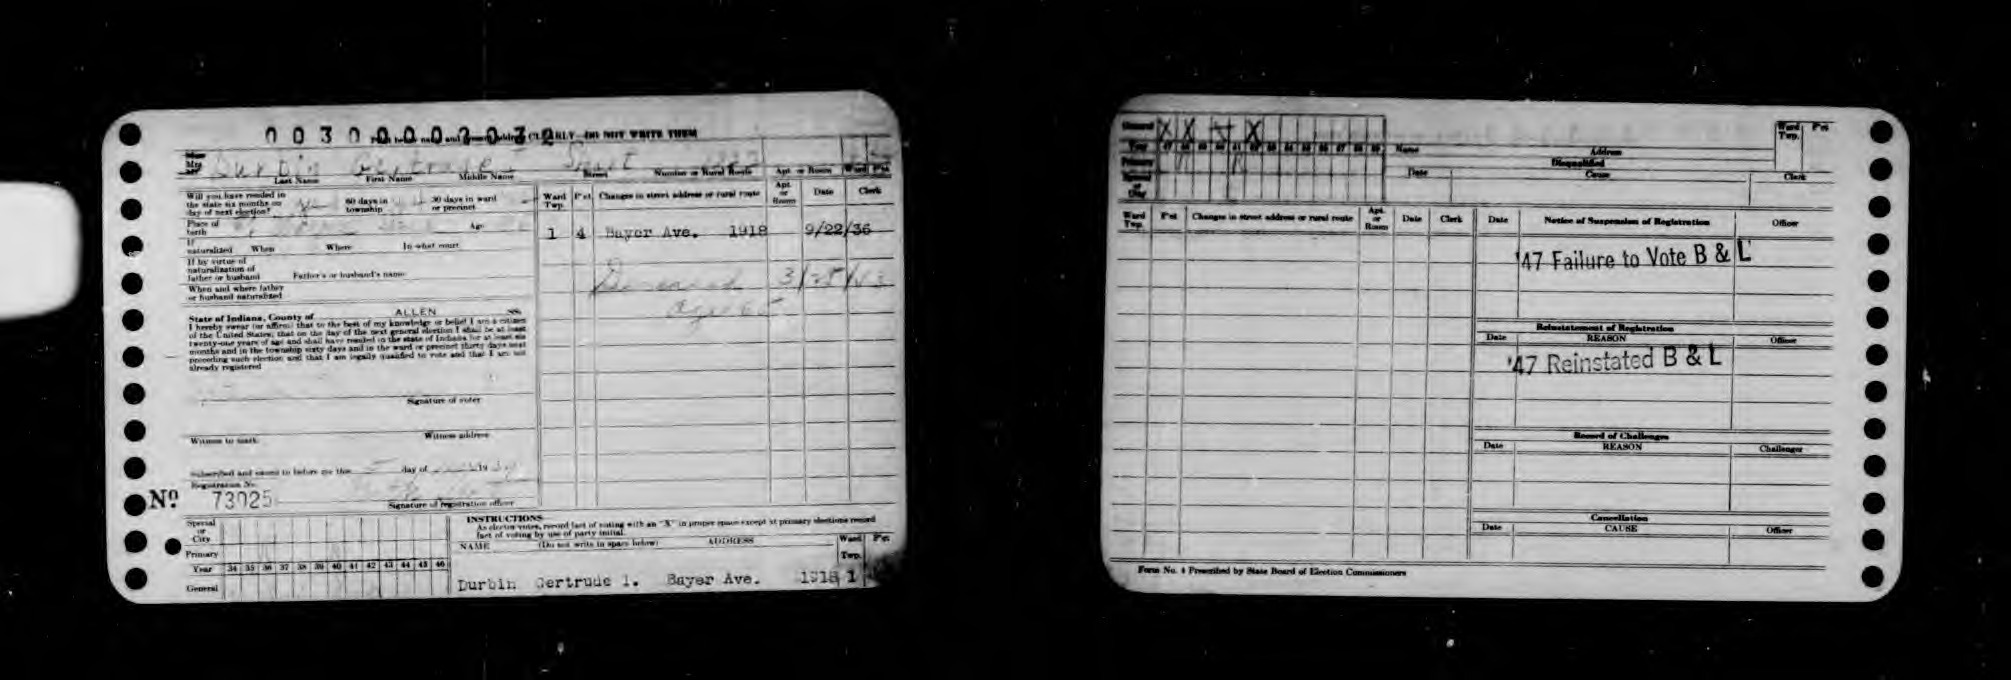 0030000203
CLEARLY—DO NOT WRITE THEM
Mrs
Durbin Gertrude I
Last Name First Name Middle Name Street Number or Rural Route Apt. or Room Ward Pct
Will you have resided in the state six months on day of next election? 60 days in township 30 days in ward or precinct
Place of birth Age
If naturalized When Where In what court
If by virtue of naturalization of father or husband Father's or husband's name
When and where father or husband naturalized
State of Indiana, County of ALLEN SS.
I hereby swear (or affirm) that to the best of my knowledge or belief I am a citizen
of the United States; that on the day of the next general election I shall be at least
twenty-one years of age and shall have resided in the state of Indiana for at least six
months and in the township sixty days and in the ward or precinct thirty days next
preceding such election and that I am legally qualified to vote and that I am not
already registered
Signature of voter
Witness to mark Witness address
Subscribed and sworn to before me this day of 19
Registration No.
Nº 73025
Signature of registration officer
Ward Twp. Pct Changes in street address or rural route Apt. or Room Date Clerk
1 4 Bayer Ave. 1918 9/22/36
Deceased 3/25/53
age 65
Special or City
Primary
Year 34 35 36 37 38 39 40 41 42 43 44 45 46
General
INSTRUCTIONS
As elector votes, record fact of voting with an "X" in proper space except at primary elections record
fact of voting by use of party initial.
NAME (Do not write in space below) ADDRESS Ward Twp. Pct
Durbin Gertrude I. Bayer Ave. 1918 1
General X X X X
Year 47 48 49 50 51 52 53 54 55 56 57 58 59
Primary
Special or City
Name Address Ward Twp. Pct
Disqualified
Date Cause Clerk
Ward Twp. Pct Changes in street address or rural route Apt. or Room Date Clerk
Date Notice of Suspension of Registration Officer
'47 Failure to Vote B & L
Reinstatement of Registration
Date REASON Officer
'47 Reinstated B & L
Record of Challenges
Date REASON Challenger
Cancellation
Date CAUSE Officer
Form No. 4 Prescribed by State Board of Election Commissioners